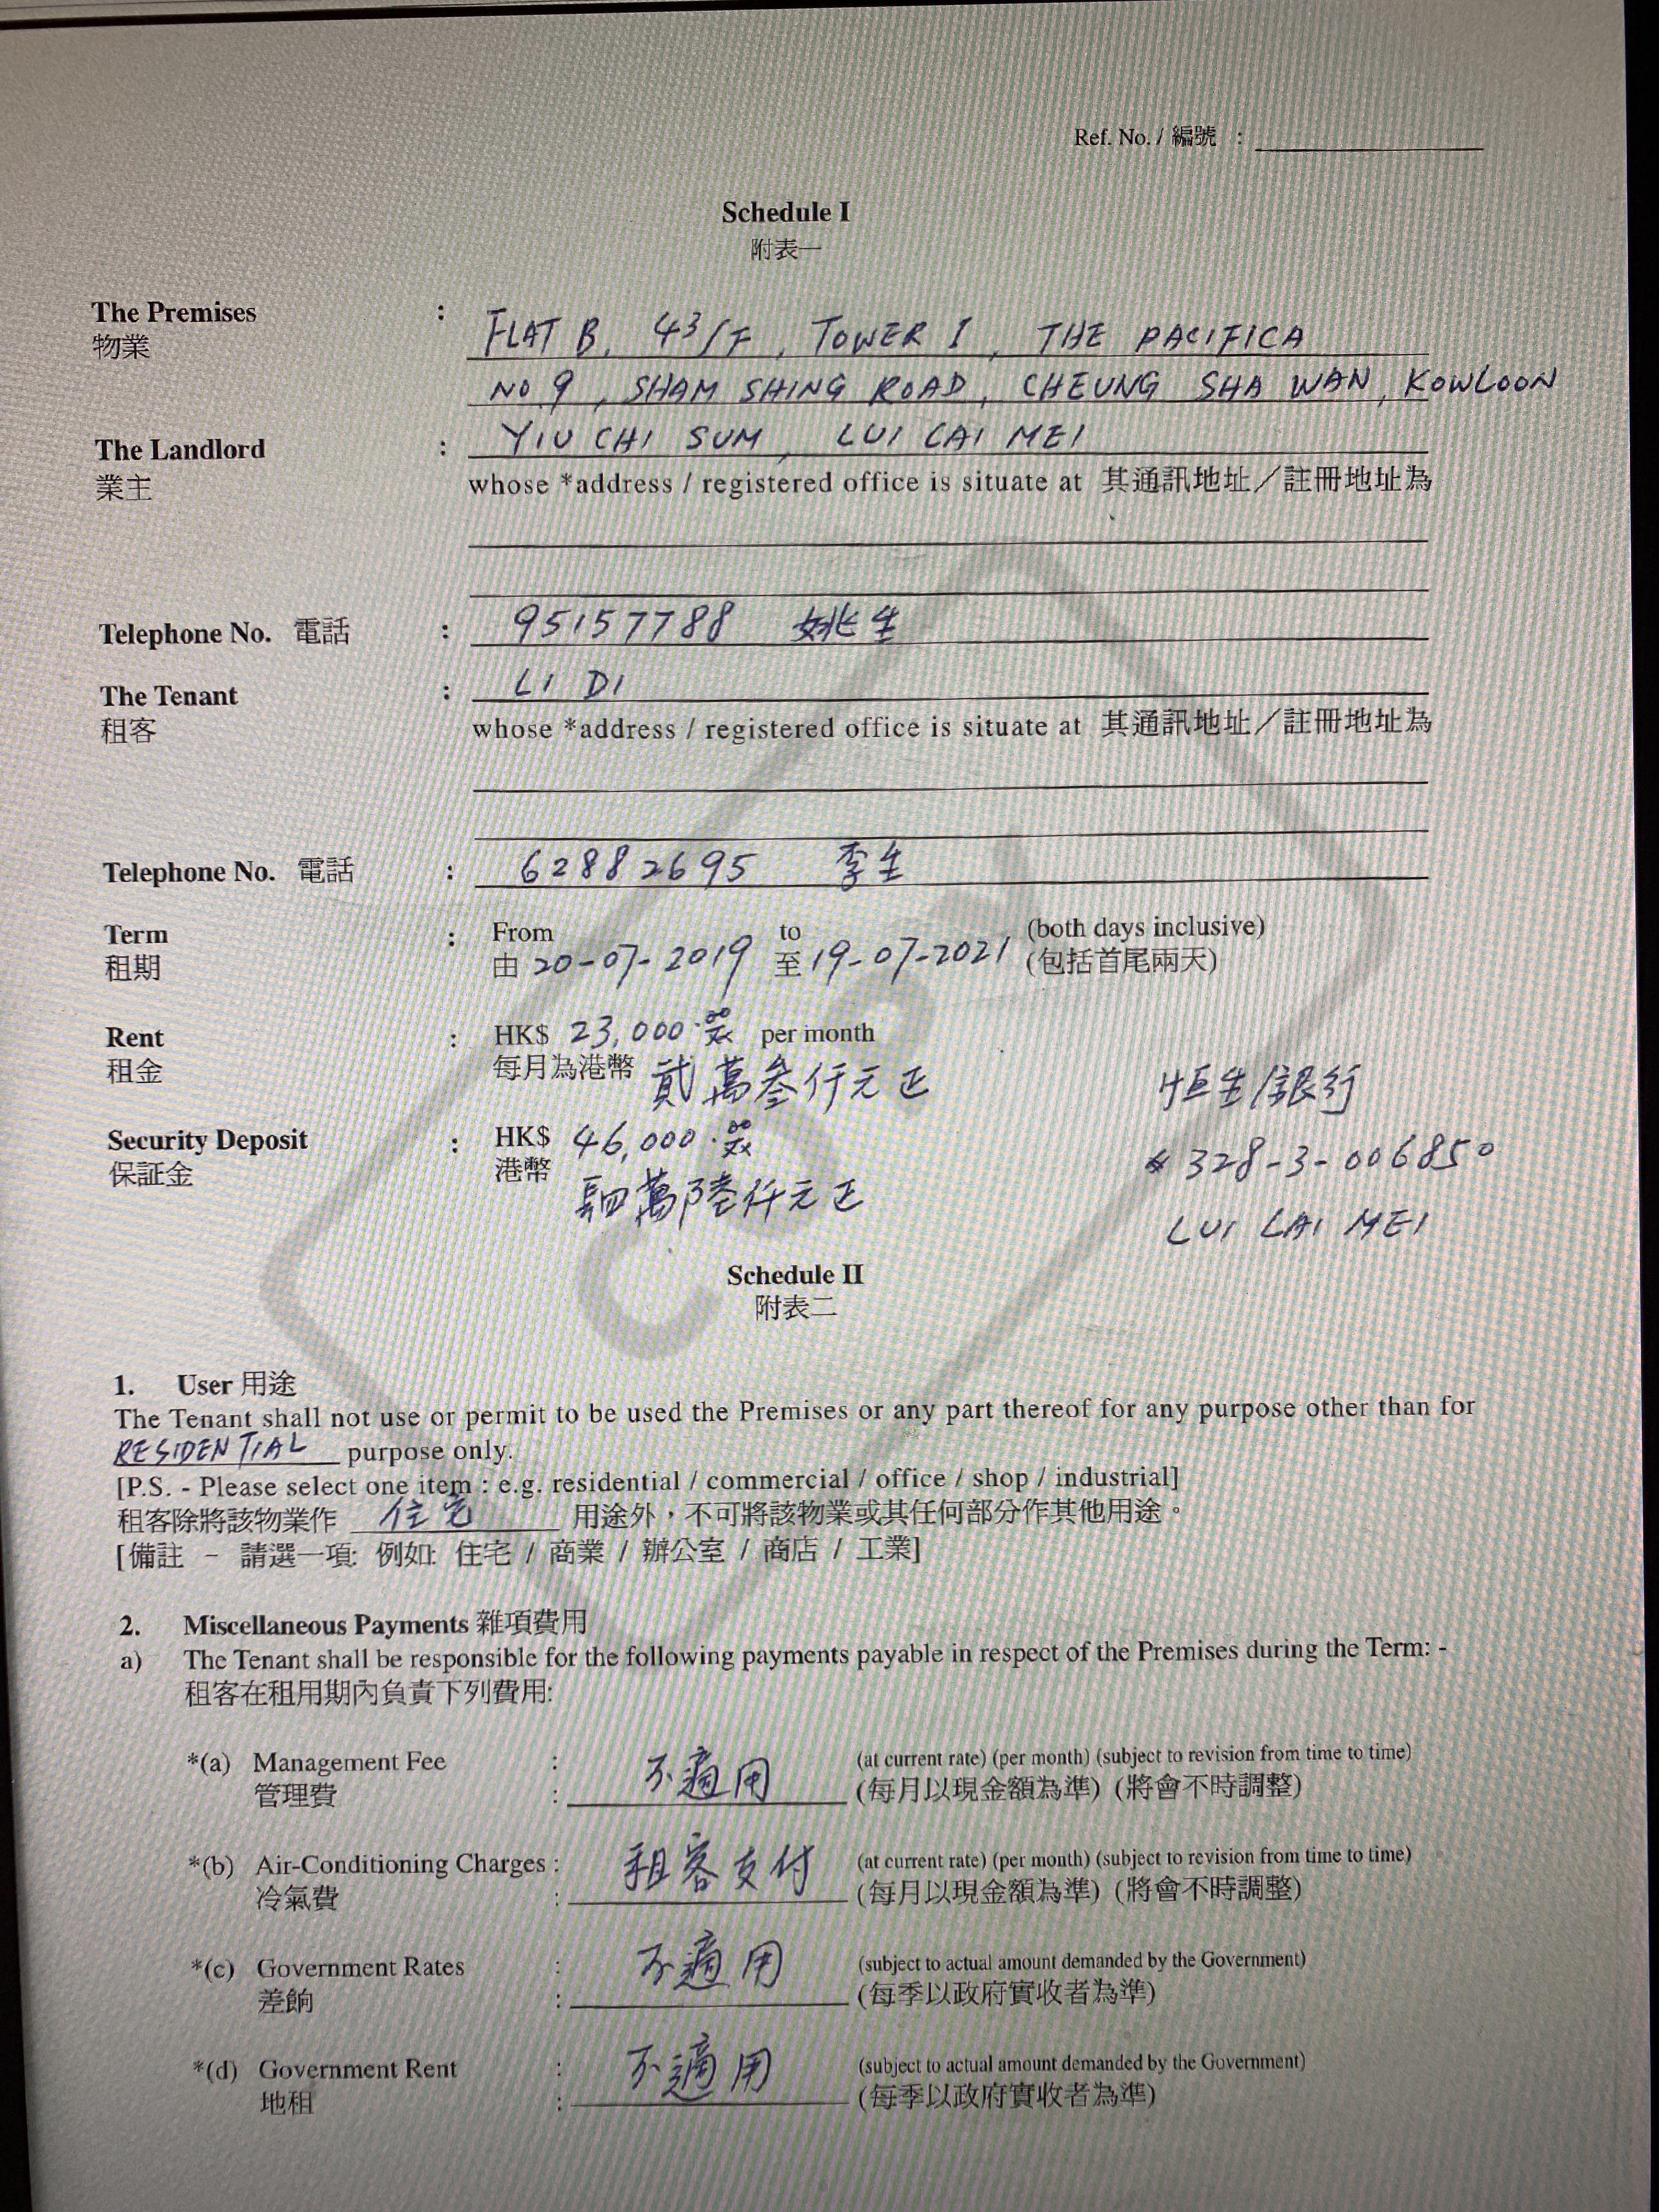 Ref. No. / 編號 :
Schedule I
附表一
The Premises : FLAT B, 43/F, TOWER I, THE PACIFICA
物業
NO 9, SHAM SHING ROAD, CHEUNG SHA WAN, KOWLOON
The Landlord : YIU CHI SUM, LUI CAI MEI
業主 whose *address / registered office is situate at 其通訊地址／註冊地址為
Telephone No. 電話 : 95157788 姚生
The Tenant : LI DI
租客 whose *address / registered office is situate at 其通訊地址／註冊地址為
Telephone No. 電話 : 62882695 李生
Term : From 20-07-2019 to 19-07-2021 (both days inclusive)
租期 由 至 (包括首尾兩天)
Rent : HK$ 23,000.00 per month
租金 每月為港幣 貳萬叁仟元正
恒生銀行
Security Deposit : HK$ 46,000.00
保証金 港幣 肆萬陸仟元正
# 328-3-006850
LUI LAI MEI
Schedule II
附表二
1. User 用途
The Tenant shall not use or permit to be used the Premises or any part thereof for any purpose other than for
RESIDENTIAL purpose only.
[P.S. - Please select one item : e.g. residential / commercial / office / shop / industrial]
租客除將該物業作 住宅 用途外，不可將該物業或其任何部分作其他用途。
[備註 - 請選一項: 例如: 住宅 / 商業 / 辦公室 / 商店 / 工業]
2. Miscellaneous Payments 雜項費用
a) The Tenant shall be responsible for the following payments payable in respect of the Premises during the Term: -
租客在租用期內負責下列費用:
*(a) Management Fee : 不適用 (at current rate) (per month) (subject to revision from time to time)
管理費 : (每月以現金額為準) (將會不時調整)
*(b) Air-Conditioning Charges : 租客支付 (at current rate) (per month) (subject to revision from time to time)
冷氣費 : (每月以現金額為準) (將會不時調整)
*(c) Government Rates : 不適用 (subject to actual amount demanded by the Government)
差餉 : (每季以政府實收者為準)
*(d) Government Rent : 不適用 (subject to actual amount demanded by the Government)
地租 : (每季以政府實收者為準)